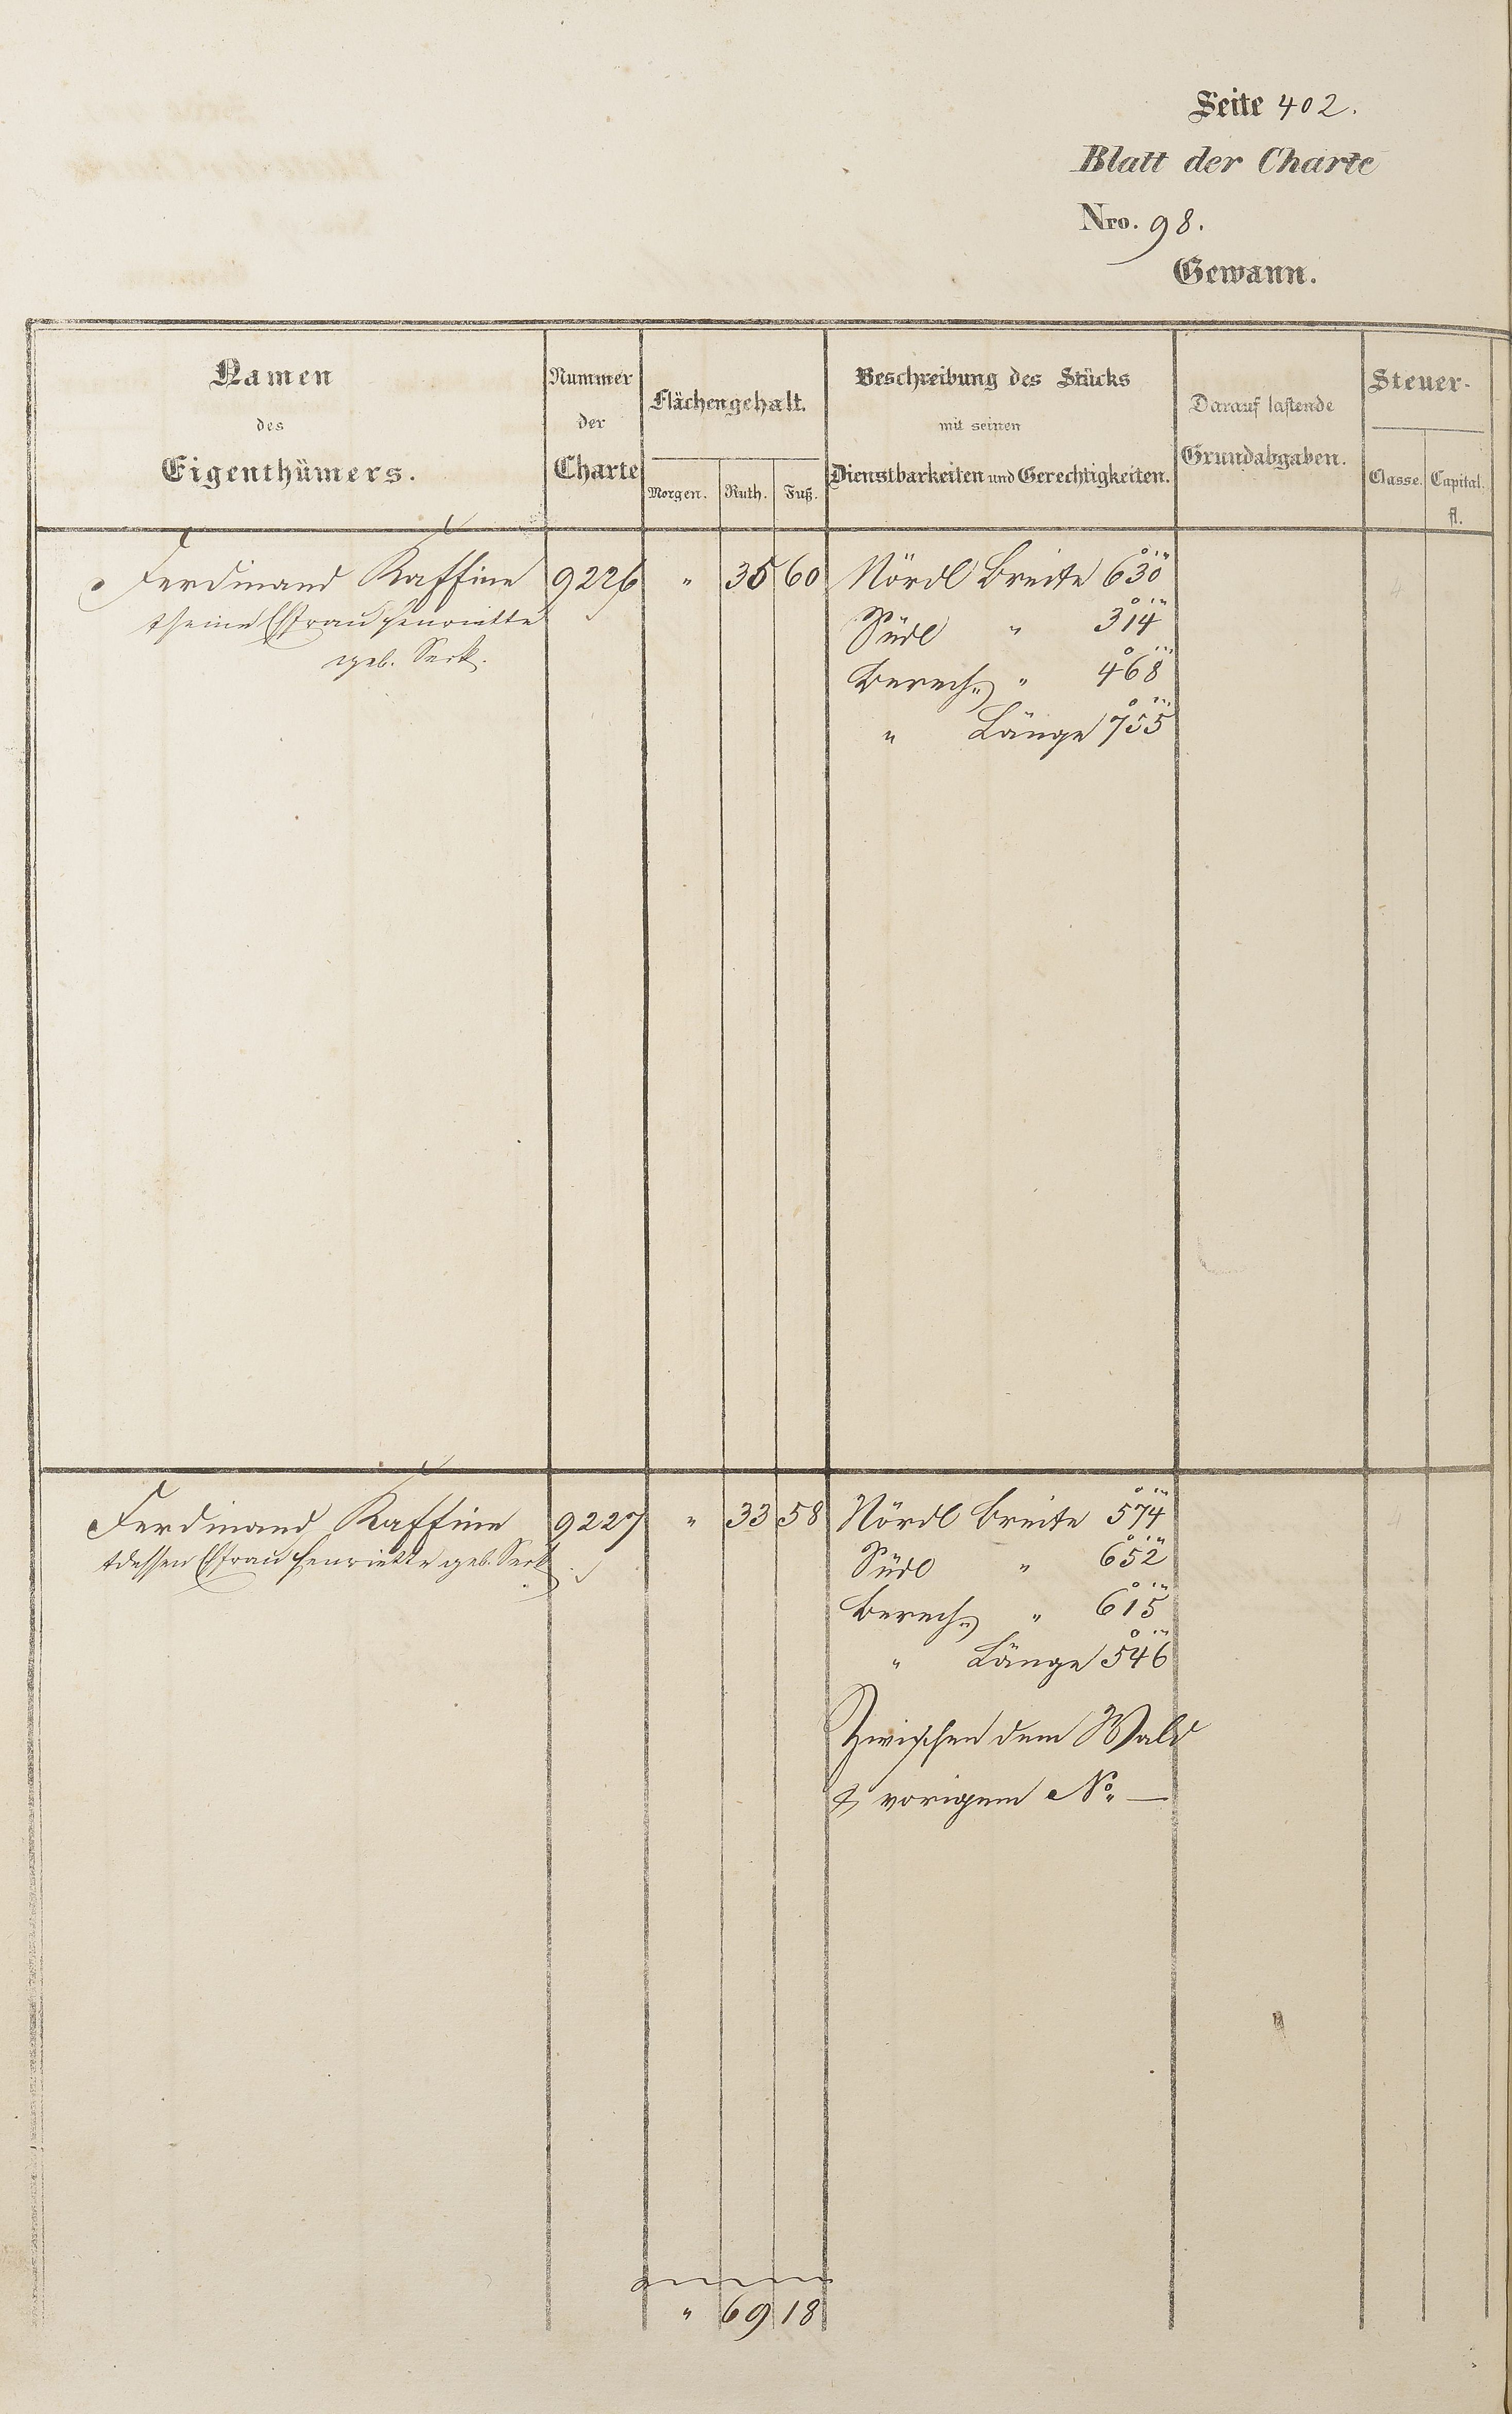 Seite 402.
Blatt der Charte
Nro. 98.
Gewann.
Namen des Eigenthümers.
Nummer der Charte
Flächengehalt.
Morgen. Ruth. Fuß.
Beschreibung des Stücks mit seinen Dienstbarkeiten und Gerechtigkeiten.
Darauf lastende Grundabgaben.
Steuer-
Classe. Capital.
fl.
Ferdinand Kaffine 9226 " 35 60 Nördl Breite 6° 3' 0"
& seine Ehfrau Henriette Südl " 3° 1' 4"
geb. Serk. Berech. " 4° 6' 8"
" Länge 7° 5' 5"
Ferdinand Kaffine 9227 " 33 58 Nördl Breite 5° 7' 4"
& dessen Ehfrau Henriette geb. Serk Südl " 6° 5' 2"
Berech. " 6° 1' 5"
" Länge 5° 4' 6"
Zwischen dem Wald
& vorigem No. —
" 69 18